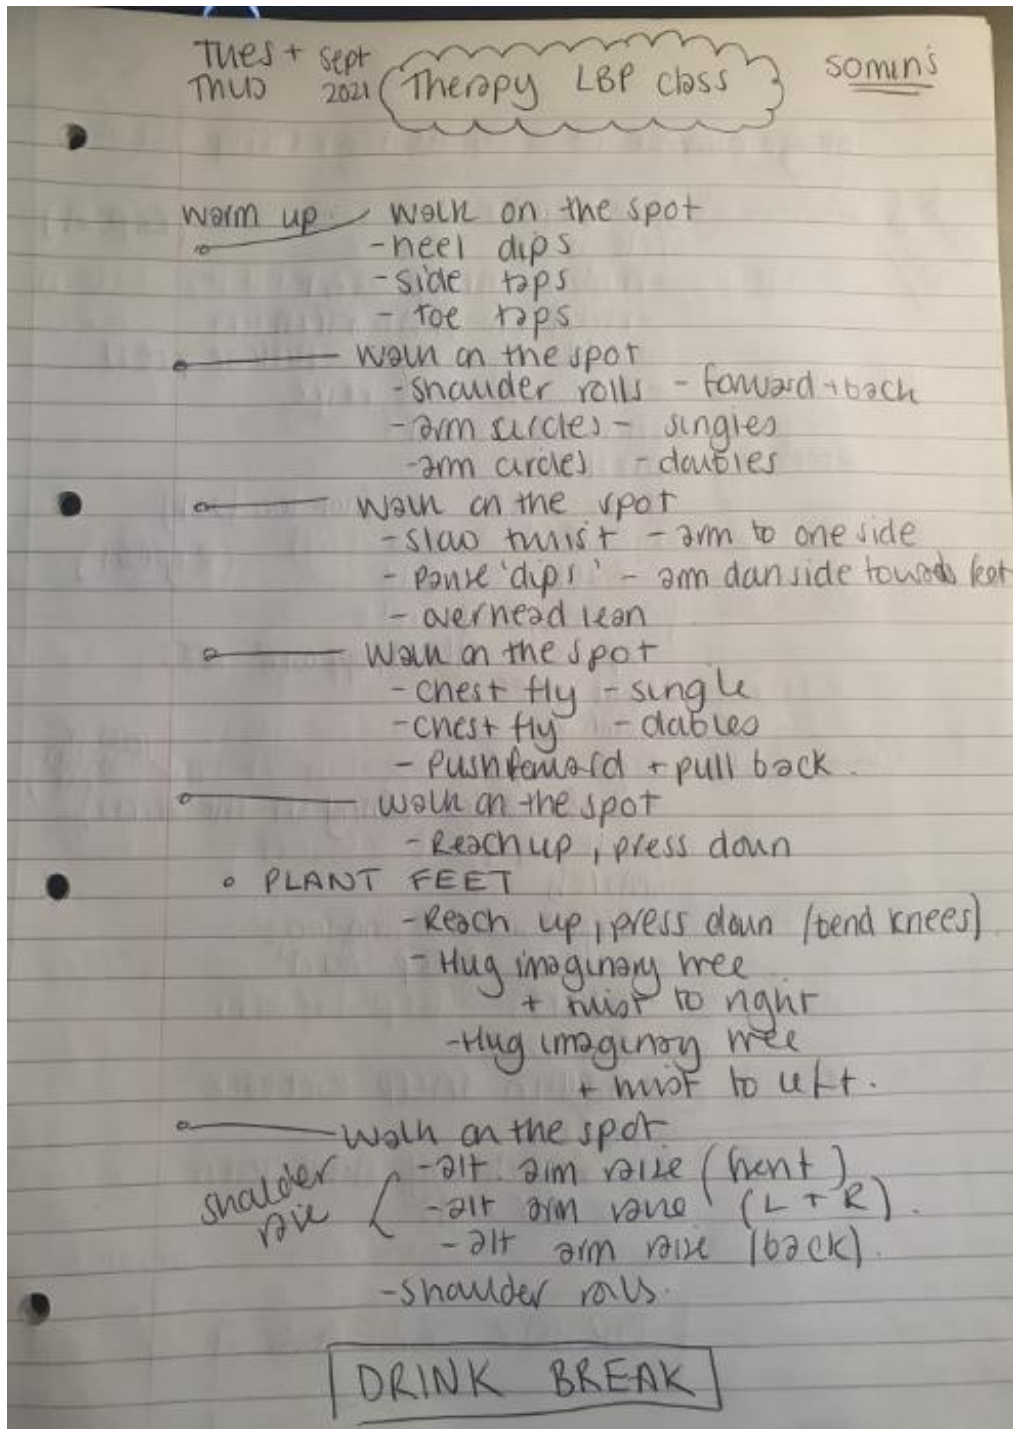 Tues + Sept
Thurs 2021
Therapy LBP class
50mins
Warm up - Walk on the spot
- heel dips
- side taps
- toe taps
Walk on the spot
- shoulder rolls - forward + back
- arm circles - singles
- arm circles - doubles
Walk on the spot
- slow twist - arm to one side
- Pause 'dips' - arm down side towards feet
- overhead lean
Walk on the spot
- chest fly - single
- chest fly - doubles
- Push forward + pull back.
Walk on the spot
- Reach up, press down
• PLANT FEET
- Reach up, press down (bend knees)
- Hug imaginary tree
+ twist to right
- Hug imaginary tree
+ twist to left.
Walk on the spot
shoulder raise
- alt. arm raise (front)
- alt arm raise (L + R).
- alt arm raise (back).
- shoulder rolls.
DRINK BREAK